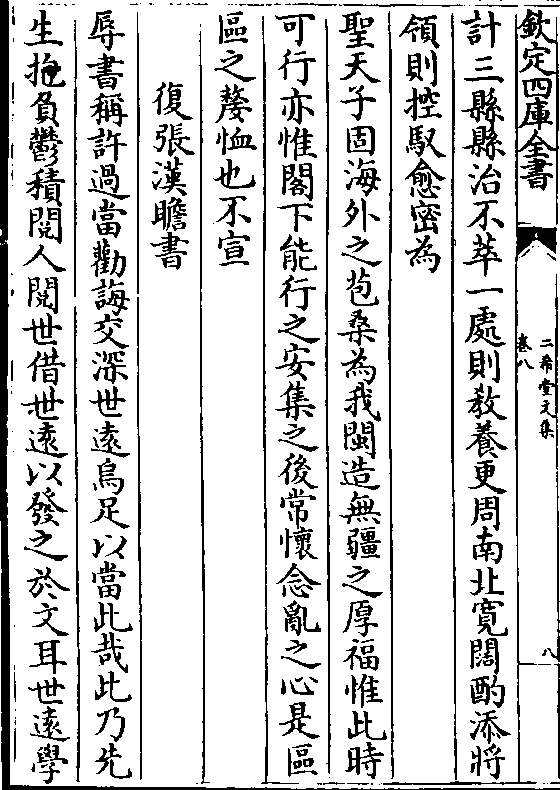 欽定四庫全書
二希堂文集
卷八
八
計三縣縣治不萃一處則教養更周南北寬闊酌添將
領則控馭愈密為
聖天子固海外之苞桑為我閩造無疆之厚福惟此時
可行亦惟閣下能行之安集之後常懷念亂之心是區
區之嫠恤也不宣
復張漢瞻書
辱書稱許過當勸誨交深世遠烏足以當此哉此乃先
生抱負鬱積閱人閱世借世遠以發之於文耳世遠學